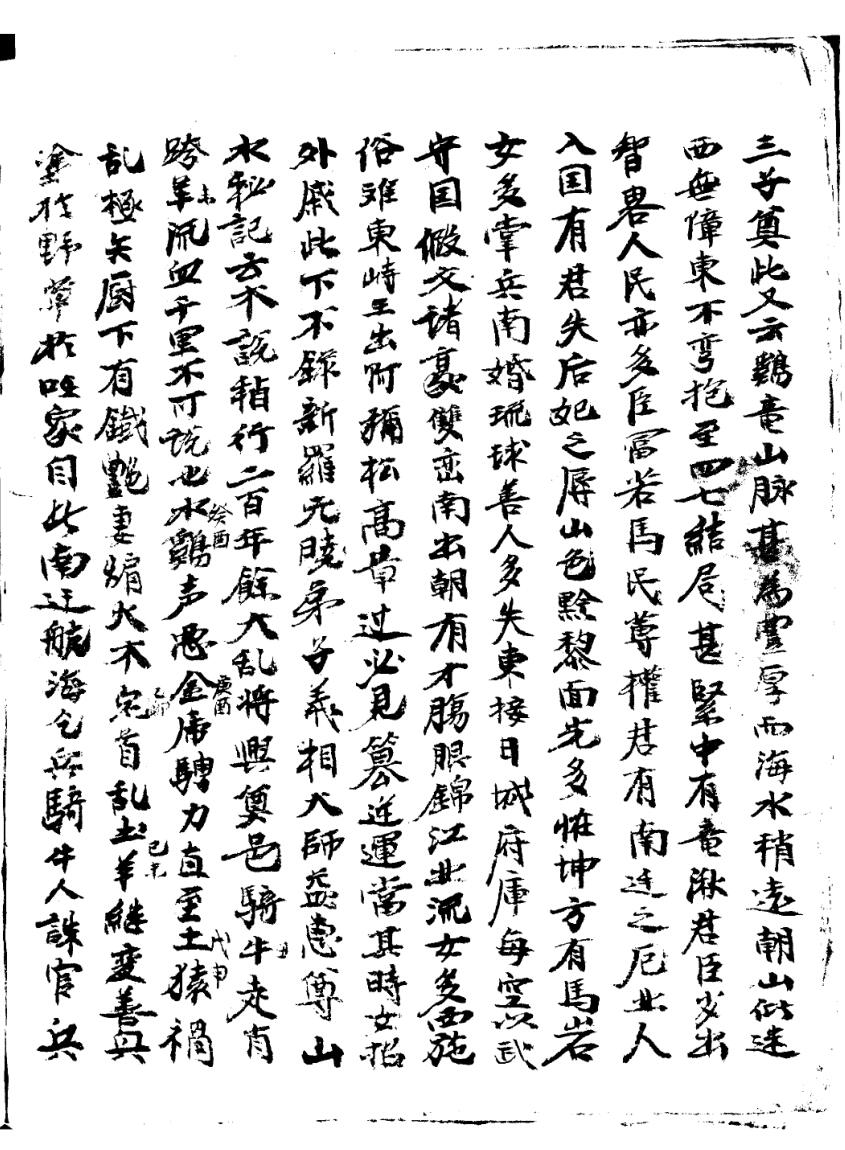 三子奠此又云鷄竜山脉甚為豊厚而海水稍遠朝山似迷
西無障東不弯抱至四七結局甚緊中有竜湫君臣少出
智畧人民亦多臣冨若馬民尊権君有南迁之厄北人
入国有君失后妃之辱山色黔黎面先多怪坤方有馬岩
女多掌兵南婚琉球善人多失東接日城府庫每空以武
守国假文诸豪雙峦南出朝有才膓眼錦江北流女多西施
俗难東峙王出阿彌松髙岸过必見簒逆運當其時女招
外戚此下不錄新羅元曉弟子義相大師盆惠尊山
水秘記云不說稍行二百年餘大乱将興奠邑騎牛丑走肖
跨羊未流血千里不可說也水鷄癸酉声惡金庚酉馳力直至土猿戊申禍
乱極矣厨下有鐵艶妻煽火木宗首乱土羊己未継变善兵
塗於野 於 家目此南迁航海乞兵騎牛人誅官兵